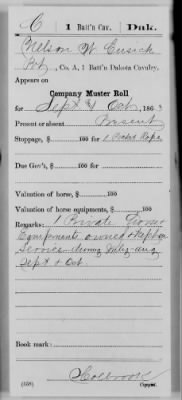 C | 1 Batt'n Cav. | Dak.
Nelson W. Cusick
Pvt, Co. A, 1 Batt'n Dakota Cavalry.
Appears on
Company Muster Roll
for Sept & Oct, 1863
Present or absent Present
Stoppage, $ 100 for 1 Picket Rope
Due Gov't, $ 100 for
Valuation of horse, $ 100
Valuation of horse equipments, $ 100
Remarks: 1 Private Horse
Equipments owned & kept in
Service during July Aug
Sept & Oct
Book mark:
Holbrook
(358) Copyist.